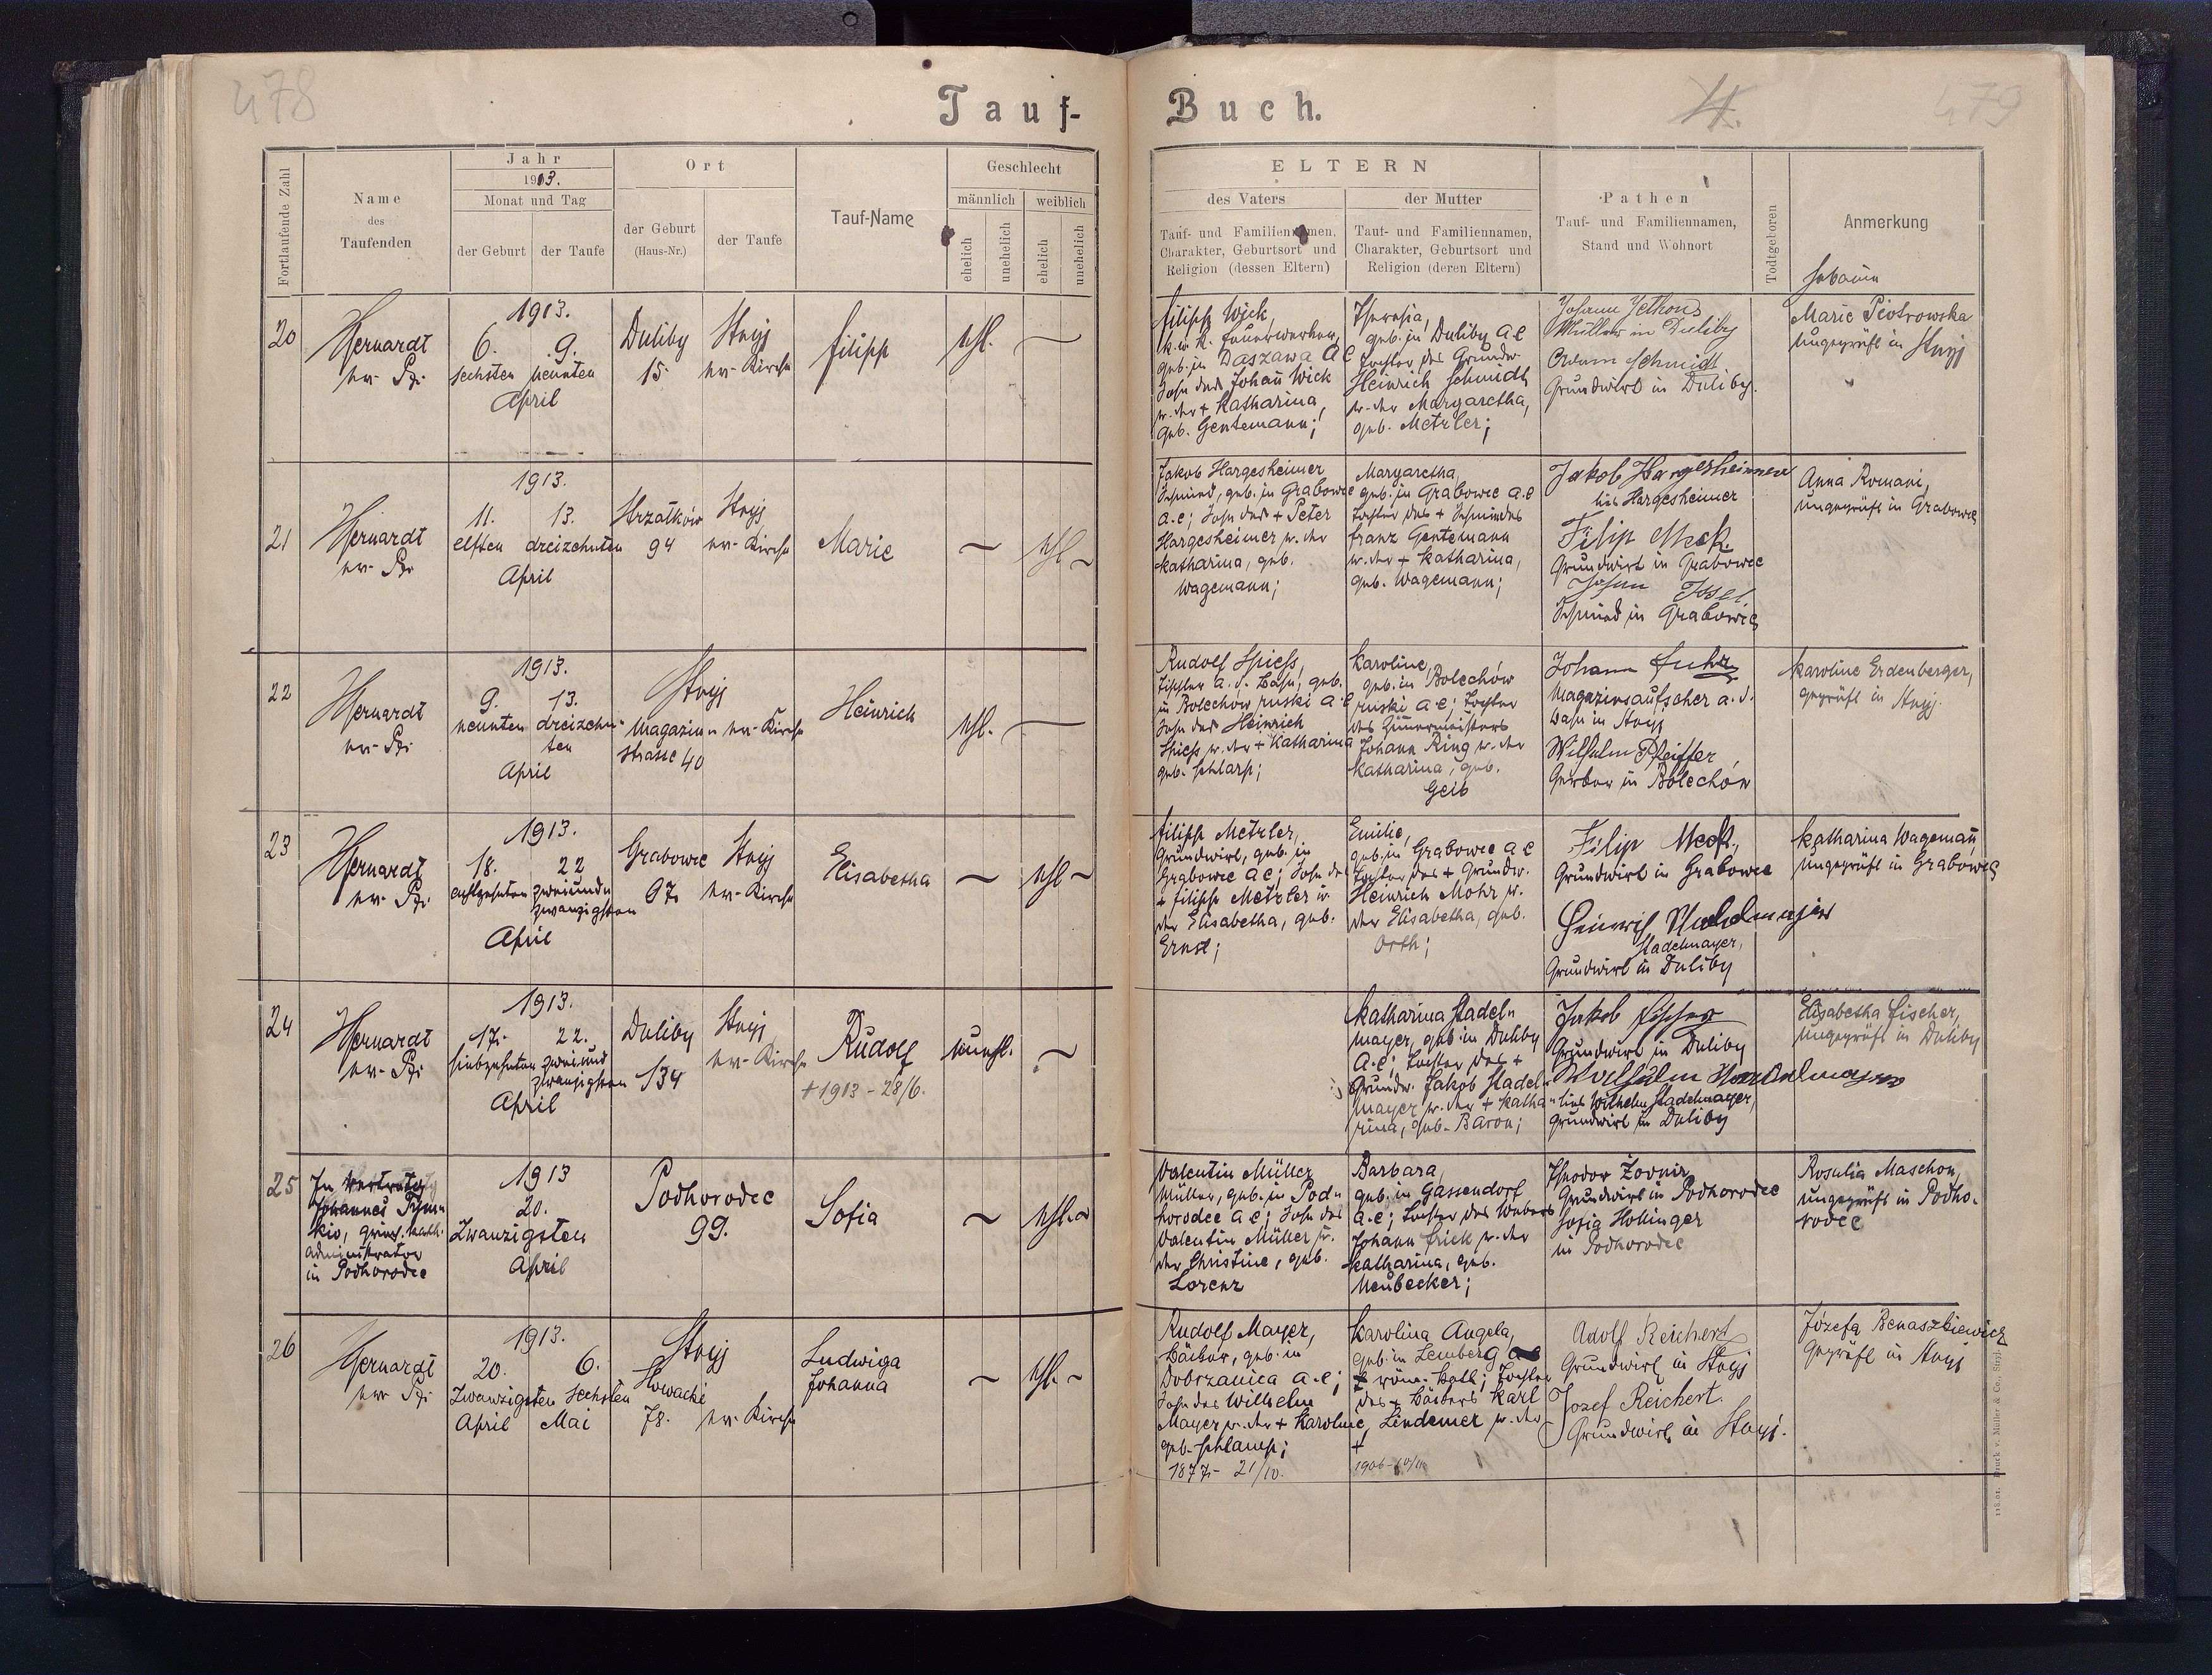 478
Tauf-
Fortlaufende Zahl
Name
des
Taufenden
Jahr
1913.
Monat und Tag
der Geburt
der Taufe
Ort
der Geburt
(Haus-Nr.)
der Taufe
Tauf-Name
Geschlecht
männlich
weiblich
ehelich
unehelich
ehelich
unehelich
20
1913.
6. 9.
sechsten neunten
April
Duliby
15.
Stryj
ev. Kirche
Filipp
ehl.
21
1913.
11. 13.
elften dreizehnten
April
94
Stryj
ev. Kirche
Marie
ehl
22
1913.
9. 13.
neunten dreizehn-
ten
April
Stryj
Magazin-
strasse 40
ev. Kirche
Heinrich
ehl.
23
1913.
18. 22
achtzehnten zweiund
zwanzigsten
April
Grabowce
97.
Stryj
ev. Kirche
Elisabetha
ehl
24
1913.
17. 22.
siebzehnten zweiund
zwanzigsten
April
Duliby
134
Stryj
ev. Kirche
Rudolf
+ 1913 - 28/6.
unehl.
25
in Podhorodce
1913
20.
Zwanzigsten
April
Podhorodce
99.
Sofia
ehl.
26
1913.
20. 6.
Zwanzigsten sechsten
April Mai
Stryj
78.
ev. Kirche
Ludwiga
Johanna
ehl.
Buch.
479
ELTERN
des Vaters
Tauf- und Familiennamen,
Charakter, Geburtsort und
Religion (dessen Eltern)
der Mutter
Tauf- und Familiennamen,
Charakter, Geburtsort und
Religion (deren Eltern)
Pathen
Tauf- und Familiennamen,
Stand und Wohnort
Todtgeboren
Anmerkung
Hebamme
Filipp Wick,
k. u. k. Feuerwerker,
geb. in Daszawa AC
Sohn des Johann Wick
u. der + Katharina,
geb. Gentemann;
Theresia,
geb. in Duliby AC
Tochter des Grundw.
Heinrich Schmidt
u. der Margaretha,
geb. Metzler;
Müller in Duliby
Adam Schmidt
Grundwirt in Duliby.
Marie Piotrowska
ungeprüft in Stryj
Jakob Hargesheimer
Schmied, geb. in Grabowce
A.C; Sohn des + Peter
Hargesheimer u. der
Katharina, geb.
Wagemann;
Margaretha,
geb. in Grabowce A.C
Tochter des + Schmiedes
Franz Gentemann
u. der + Katharina,
geb. Wagemann;
Jakob Hargesheimer
lies Hargesheimer
Filip Meck.
Grundwirt in Grabowce
Schmied in Grabowce
Anna Romani,
ungeprüft in Grabowce
Rudolf Spiess,
Tischler a. d. Bahn, geb.
in Bolechów ruski A.C
Sohn des Heinrich
Spiess u. der + Katharina
geb. Schlarp;
Karoline,
geb. in Bolechów
ruski AC; Tochter
des Zimmermeisters
Johann Ring u. der
Katharina, geb.
Geib
Johann Fuhr
Magazinsaufseher a. d.
Bahn in Stryj
Wilhelm Pfeiffer,
Gerber in Bolechów
Karoline Erdenberger,
geprüft in Stryj.
Filipp Metzler,
Grundwirt, geb. in
Grabowce AC; Sohn des
+ Filipp Metzler u.
der Elisabetha, geb.
Ernst;
Emilie,
geb. in Grabowce AC
Tochter des + Grundw.
Heinrich Mohr u.
der Elisabetha, geb.
Orth;
Filip Meck,
Grundwirt in Grabowce
Stadelmayer,
Grundwirt in Duliby
Katharina Wagemann
ungeprüft in Grabowce
Katharina Stadel-
mayer, geb. in Duliby
A.C; Tochter des +
Grundw. Jakob Stadel-
mayer u. der + Katha-
rina, geb. Baron;
Jakob Fischer
Grundwirt in Duliby
lies Wilhelm Stadelmayer,
Grundwirt in Duliby
Elisabetha Fischer,
ungeprüft in Duliby
Valentin Müller
Müller, geb. in Pod-
horodce AC; Sohn des
Valentin Müller u.
der Christine, geb.
Lorenz
Barbara,
geb. in Gassendorf
A.C; Tochter des Webers
Johann Frick u. der
Katharina, geb.
Neubecker;
Grundwirt in Podhorodce
Sofia Hollinger
in Podhorodce
Rosalia Maschon,
ungeprüft in Podho-
rodce
Rudolf Mayer,
Bäcker, geb. in
Dobrzanica A.C;
Sohn des Wilhelm
Mayer u. der + Karoline,
geb. Schlamp;
1877- 21/10.
Karolina Angela,
geb. in Lemberg
röm. kath; Tochter
des + Bäckers Karl
Lindemer u. der
+
Adolf Reichert
Grundwirt in Stryj
Jozef Reichert.
Grundwirt in Stryj.
Józefa Benaszkiewicz
geprüft in Stryj
Druck v. Müller & Co., Stryj.